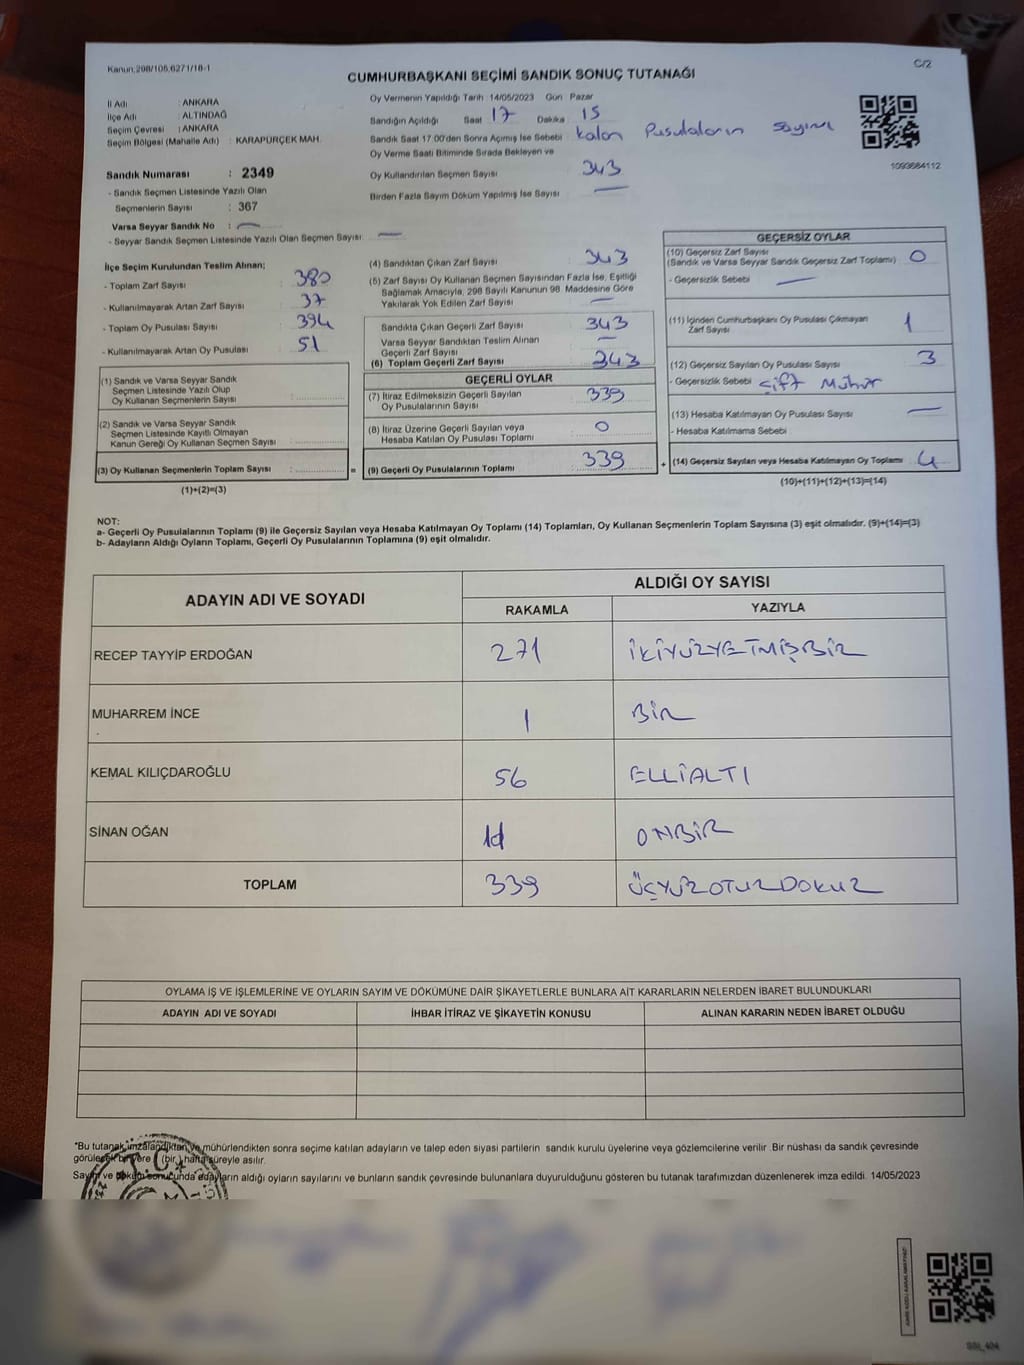 Kanun:298/105,6271/18-1
C/2
CUMHURBAŞKANI SEÇİMİ SANDIK SONUÇ TUTANAĞI
İl Adı : ANKARA
İlçe Adı : ALTINDAĞ
Seçim Çevresi : ANKARA
Seçim Bölgesi (Mahalle Adı) : KARAPÜRÇEK MAH.
Sandık Numarası : 2349
- Sandık Seçmen Listesinde Yazılı Olan
Seçmenlerin Sayısı : 367
Varsa Seyyar Sandık No : —
- Seyyar Sandık Seçmen Listesinde Yazılı Olan Seçmen Sayısı: —
Oy Vermenin Yapıldığı Tarih :14/05/2023 Gün Pazar
Sandığın Açıldığı Saat 17 Dakika 15
Sandık Saat 17.00'den Sonra Açılmış İse Sebebi : kalan Pusulaların sayımı
Oy Verme Saati Bitiminde Sırada Bekleyen ve
Oy Kullandırılan Seçmen Sayısı 343
Birden Fazla Sayım Döküm Yapılmış İse Sayısı —
1093684112
İlçe Seçim Kurulundan Teslim Alınan;
- Toplam Zarf Sayısı : 380
- Kullanılmayarak Artan Zarf Sayısı : 37
- Toplam Oy Pusulası Sayısı : 394
- Kullanılmayarak Artan Oy Pusulası : 51
(1) Sandık ve Varsa Seyyar Sandık
Seçmen Listesinde Yazılı Olup
Oy Kullanan Seçmenlerin Sayısı :
(2) Sandık ve Varsa Seyyar Sandık
Seçmen Listesinde Kayıtlı Olmayan
Kanun Gereği Oy Kullanan Seçmen Sayısı :
(3) Oy Kullanan Seçmenlerin Toplam Sayısı :
(1)+(2)=(3)
(4) Sandıktan Çıkan Zarf Sayısı 343
(5) Zarf Sayısı Oy Kullanan Seçmen Sayısından Fazla İse, Eşitliği
Sağlamak Amacıyla, 298 Sayılı Kanunun 98. Maddesine Göre
Yakılarak Yok Edilen Zarf Sayısı —
Sandıkta Çıkan Geçerli Zarf Sayısı 343
Varsa Seyyar Sandıktan Teslim Alınan
Geçerli Zarf Sayısı —
(6) Toplam Geçerli Zarf Sayısı 343
GEÇERLİ OYLAR
(7) İtiraz Edilmeksizin Geçerli Sayılan
Oy Pusulalarının Sayısı : 339
(8) İtiraz Üzerine Geçerli Sayılan veya
Hesaba Katılan Oy Pusulası Toplamı : 0
= (9) Geçerli Oy Pusulalarının Toplamı : 339
GEÇERSİZ OYLAR
(10) Geçersiz Zarf Sayısı
(Sandık ve Varsa Seyyar Sandık Geçersiz Zarf Toplamı) : 0
- Geçersizlik Sebebi : —
(11) İçinden Cumhurbaşkanı Oy Pusulası Çıkmayan
Zarf Sayısı : 1
(12) Geçersiz Sayılan Oy Pusulası Sayısı : 3
- Geçersizlik Sebebi : çift Mühür
(13) Hesaba Katılmayan Oy Pusulası Sayısı : —
- Hesaba Katılmama Sebebi :
+ (14) Geçersiz Sayılan veya Hesaba Katılmayan Oy Toplamı : 4
(10)+(11)+(12)+(13)=(14)
NOT:
a- Geçerli Oy Pusulalarının Toplamı (9) ile Geçersiz Sayılan veya Hesaba Katılmayan Oy Toplamı (14) Toplamları, Oy Kullanan Seçmenlerin Toplam Sayısına (3) eşit olmalıdır. (9)+(14)=(3)
b- Adayların Aldığı Oyların Toplamı, Geçerli Oy Pusulalarının Toplamına (9) eşit olmalıdır.
ADAYIN ADI VE SOYADI
ALDIĞI OY SAYISI
RAKAMLA YAZIYLA
RECEP TAYYİP ERDOĞAN 271 İKİYÜZYETMİŞBİR
MUHARREM İNCE 1 BİR
KEMAL KILIÇDAROĞLU 56 ELLİALTI
SİNAN OĞAN 11 ONBİR
TOPLAM 339 ÜÇYÜZOTUZDOKUZ
OYLAMA İŞ VE İŞLEMLERİNE VE OYLARIN SAYIM VE DÖKÜMÜNE DAİR ŞİKAYETLERLE BUNLARA AİT KARARLARIN NELERDEN İBARET BULUNDUKLARI
ADAYIN ADI VE SOYADI İHBAR İTİRAZ VE ŞİKAYETİN KONUSU ALINAN KARARIN NEDEN İBARET OLDUĞU
*Bu tutanak imzalandıktan ve mühürlendikten sonra seçime katılan adayların ve talep eden siyasi partilerin sandık kurulu üyelerine veya gözlemcilerine verilir. Bir nüshası da sandık çevresinde
görülecek bir yere 1 (bir) hafta süreyle asılır.
Sayım ve döküm sonucunda adayların aldığı oyların sayılarını ve bunların sandık çevresinde bulunanlara duyurulduğunu gösteren bu tutanak tarafımızdan düzenlenerek imza edildi. 14/05/2023
T.C.